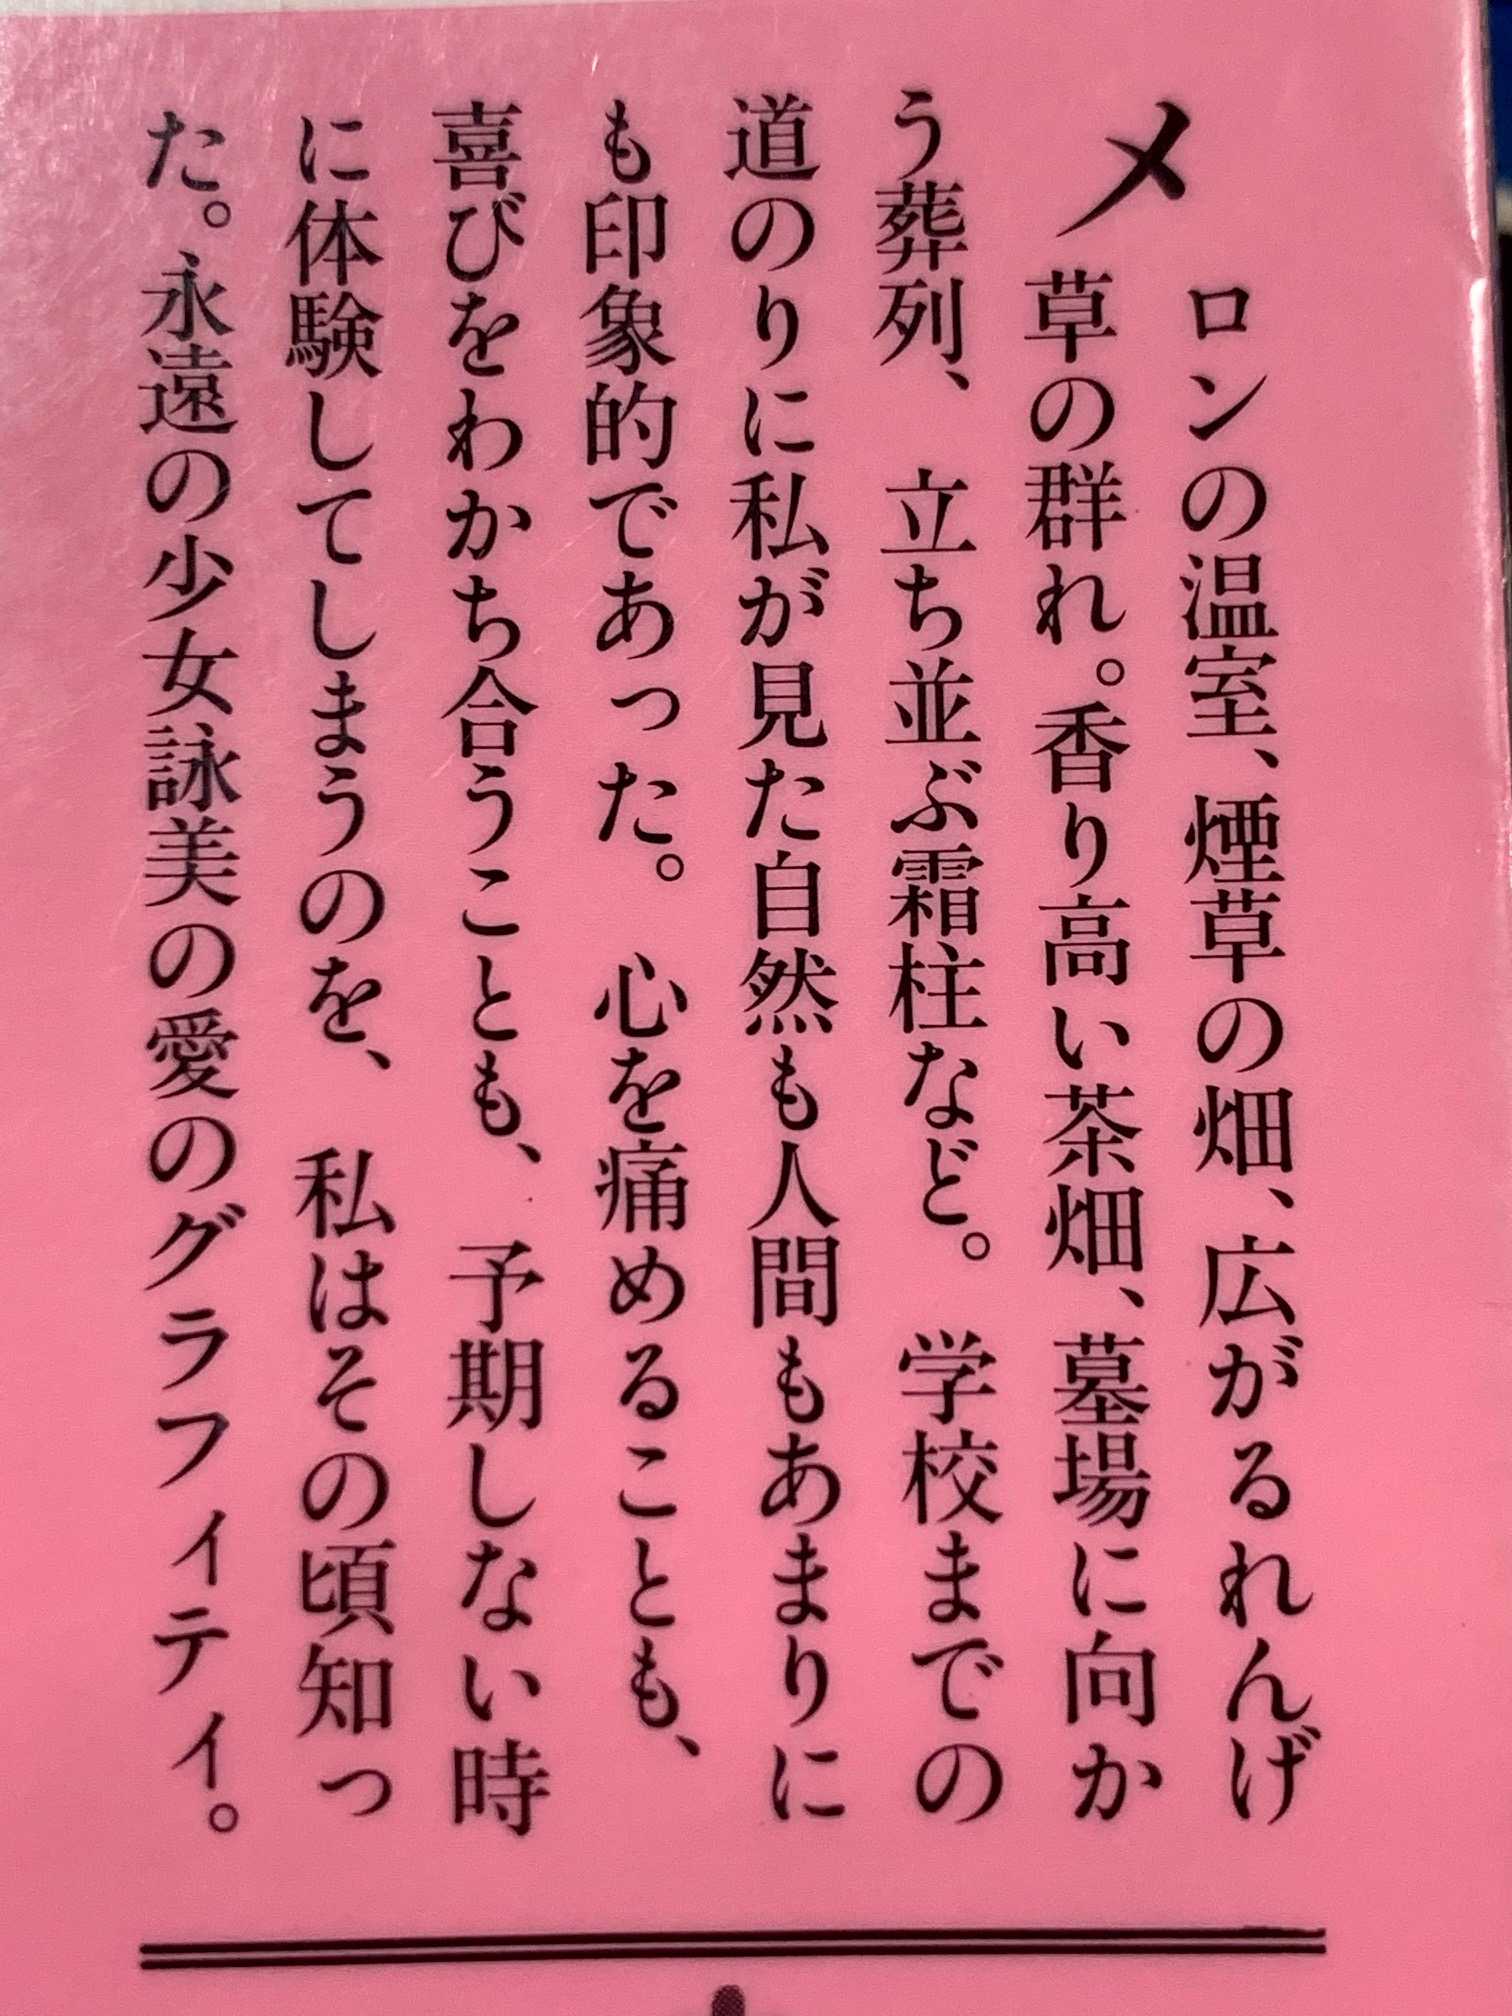 メロンの温室、煙草の畑、広がるれんげ
草の群れ。香り高い茶畑、墓場に向か
う葬列、立ち並ぶ霜柱など。学校までの
道のりに私が見た自然も人間もあまりに
も印象的であった。心を痛めることも、
喜びをわかち合うことも、予期しない時
に体験してしまうのを、私はその頃知っ
た。永遠の少女詠美の愛のグラフィティ。